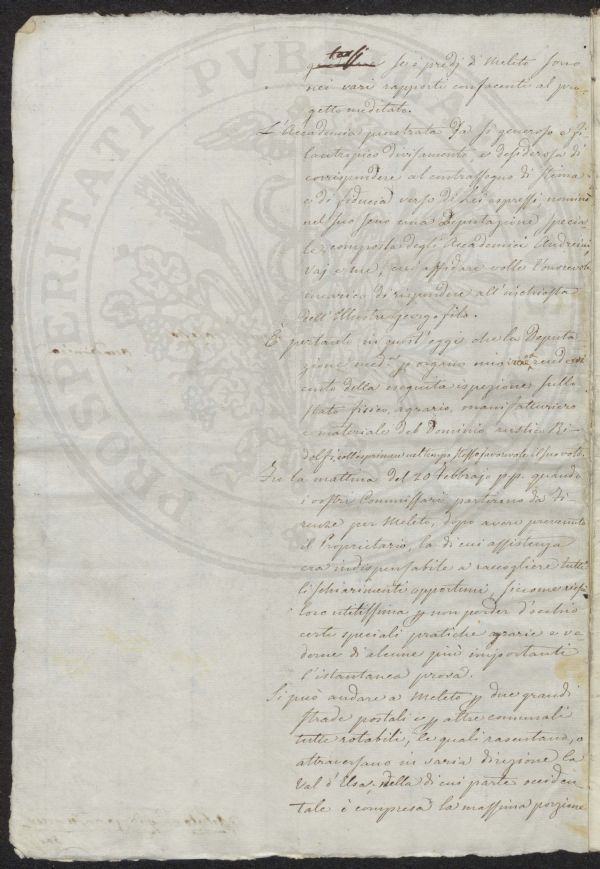 tassi
se i predj di Meleto sono
nei vari rapporti confacenti al pro-
getto meditato.
L'Accademia penetrata da sì generoso e fi-
lantropico divisamento e desiderosa di
corrispondere al contrassegno di stima
e di fiducia verso di Lei espressi, nominò
nel suo seno una Deputazione specia
le, composta degli Accademici Andreini,
Vaj e me, cui affidar volle l'onorevole
incarico di rispondere all'inchiesta
dell'Illustre Georgofilo.
È pertanto in quest'oggi che la Deputa
zione med.ª p organo mio rende
conto della eseguita ispezione sullo
stato fisico, agrario, manifatturiero
e materiale del Dominio rustico Ri-
dolfi, e nel tempo stesso favorevole il suo voto.
Fu la mattina del 20 Febbrajo pp. quando
i vostri Commissari partirono da Fi
renze per Meleto, dopo avere prevenuto
il Proprietario, la di cui assistenza
era indispensabile a raccogliere tutti
li schiarimenti opportuni, siccome riescì
loro utilissima p non perder d'occhio
certe speciali pratiche agrarie e ve
derne di alcune più importanti
l'istantanea prova.
Si può andare a Meleto p due grandi
strade postali e p altre comunali
tutte rotabili, le quali rasentano, o
attraversano in varia direzione la
Val d'Elsa, nella di cui parte occiden
tale è compresa la massima porzione
PROSPERITATI PUBLICAE